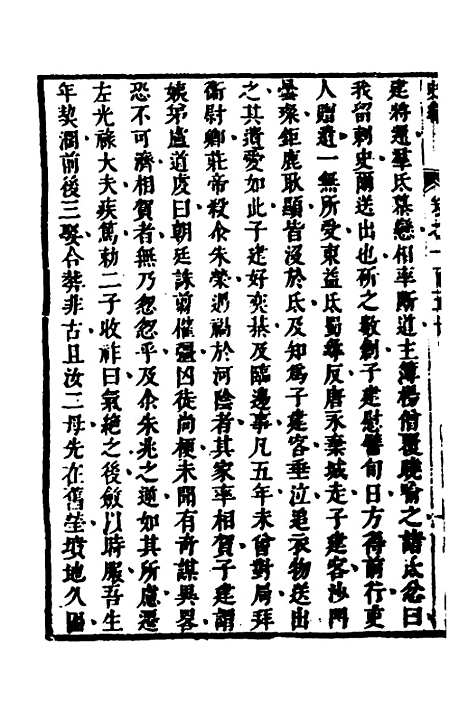 建將還羣氐慕戀相率斷道主簿楊僧覆曉喻之諸氐忿曰
我留刺史爾送出也斫之數創子建慰譬旬日方得前行吏
人贈遺一無所受東益氐蜀尋反唐永棄城走子建客沙門
曇璨鉅鹿耿顯皆沒於氐及知爲子建客垂泣追衣物送出
之其遺愛如此子建好奕棊及臨邊事凡五年未曾對局拜
衞尉卿莊帝殺尒朱榮遇禍於河陰者其家率相賀子建謂
姨弟盧道虔曰朝廷誅翦催彊凶徒尚梗未聞有奇謀異畧
恐不可濟相賀者無乃怱怱乎及尒朱兆之逆如其所慮遷
左光祿大夫疾篤勑二子收祚曰氣絶之後斂以時服吾生
年契濶前後三娶合葬非古且汝二母先在舊塋墳地久固